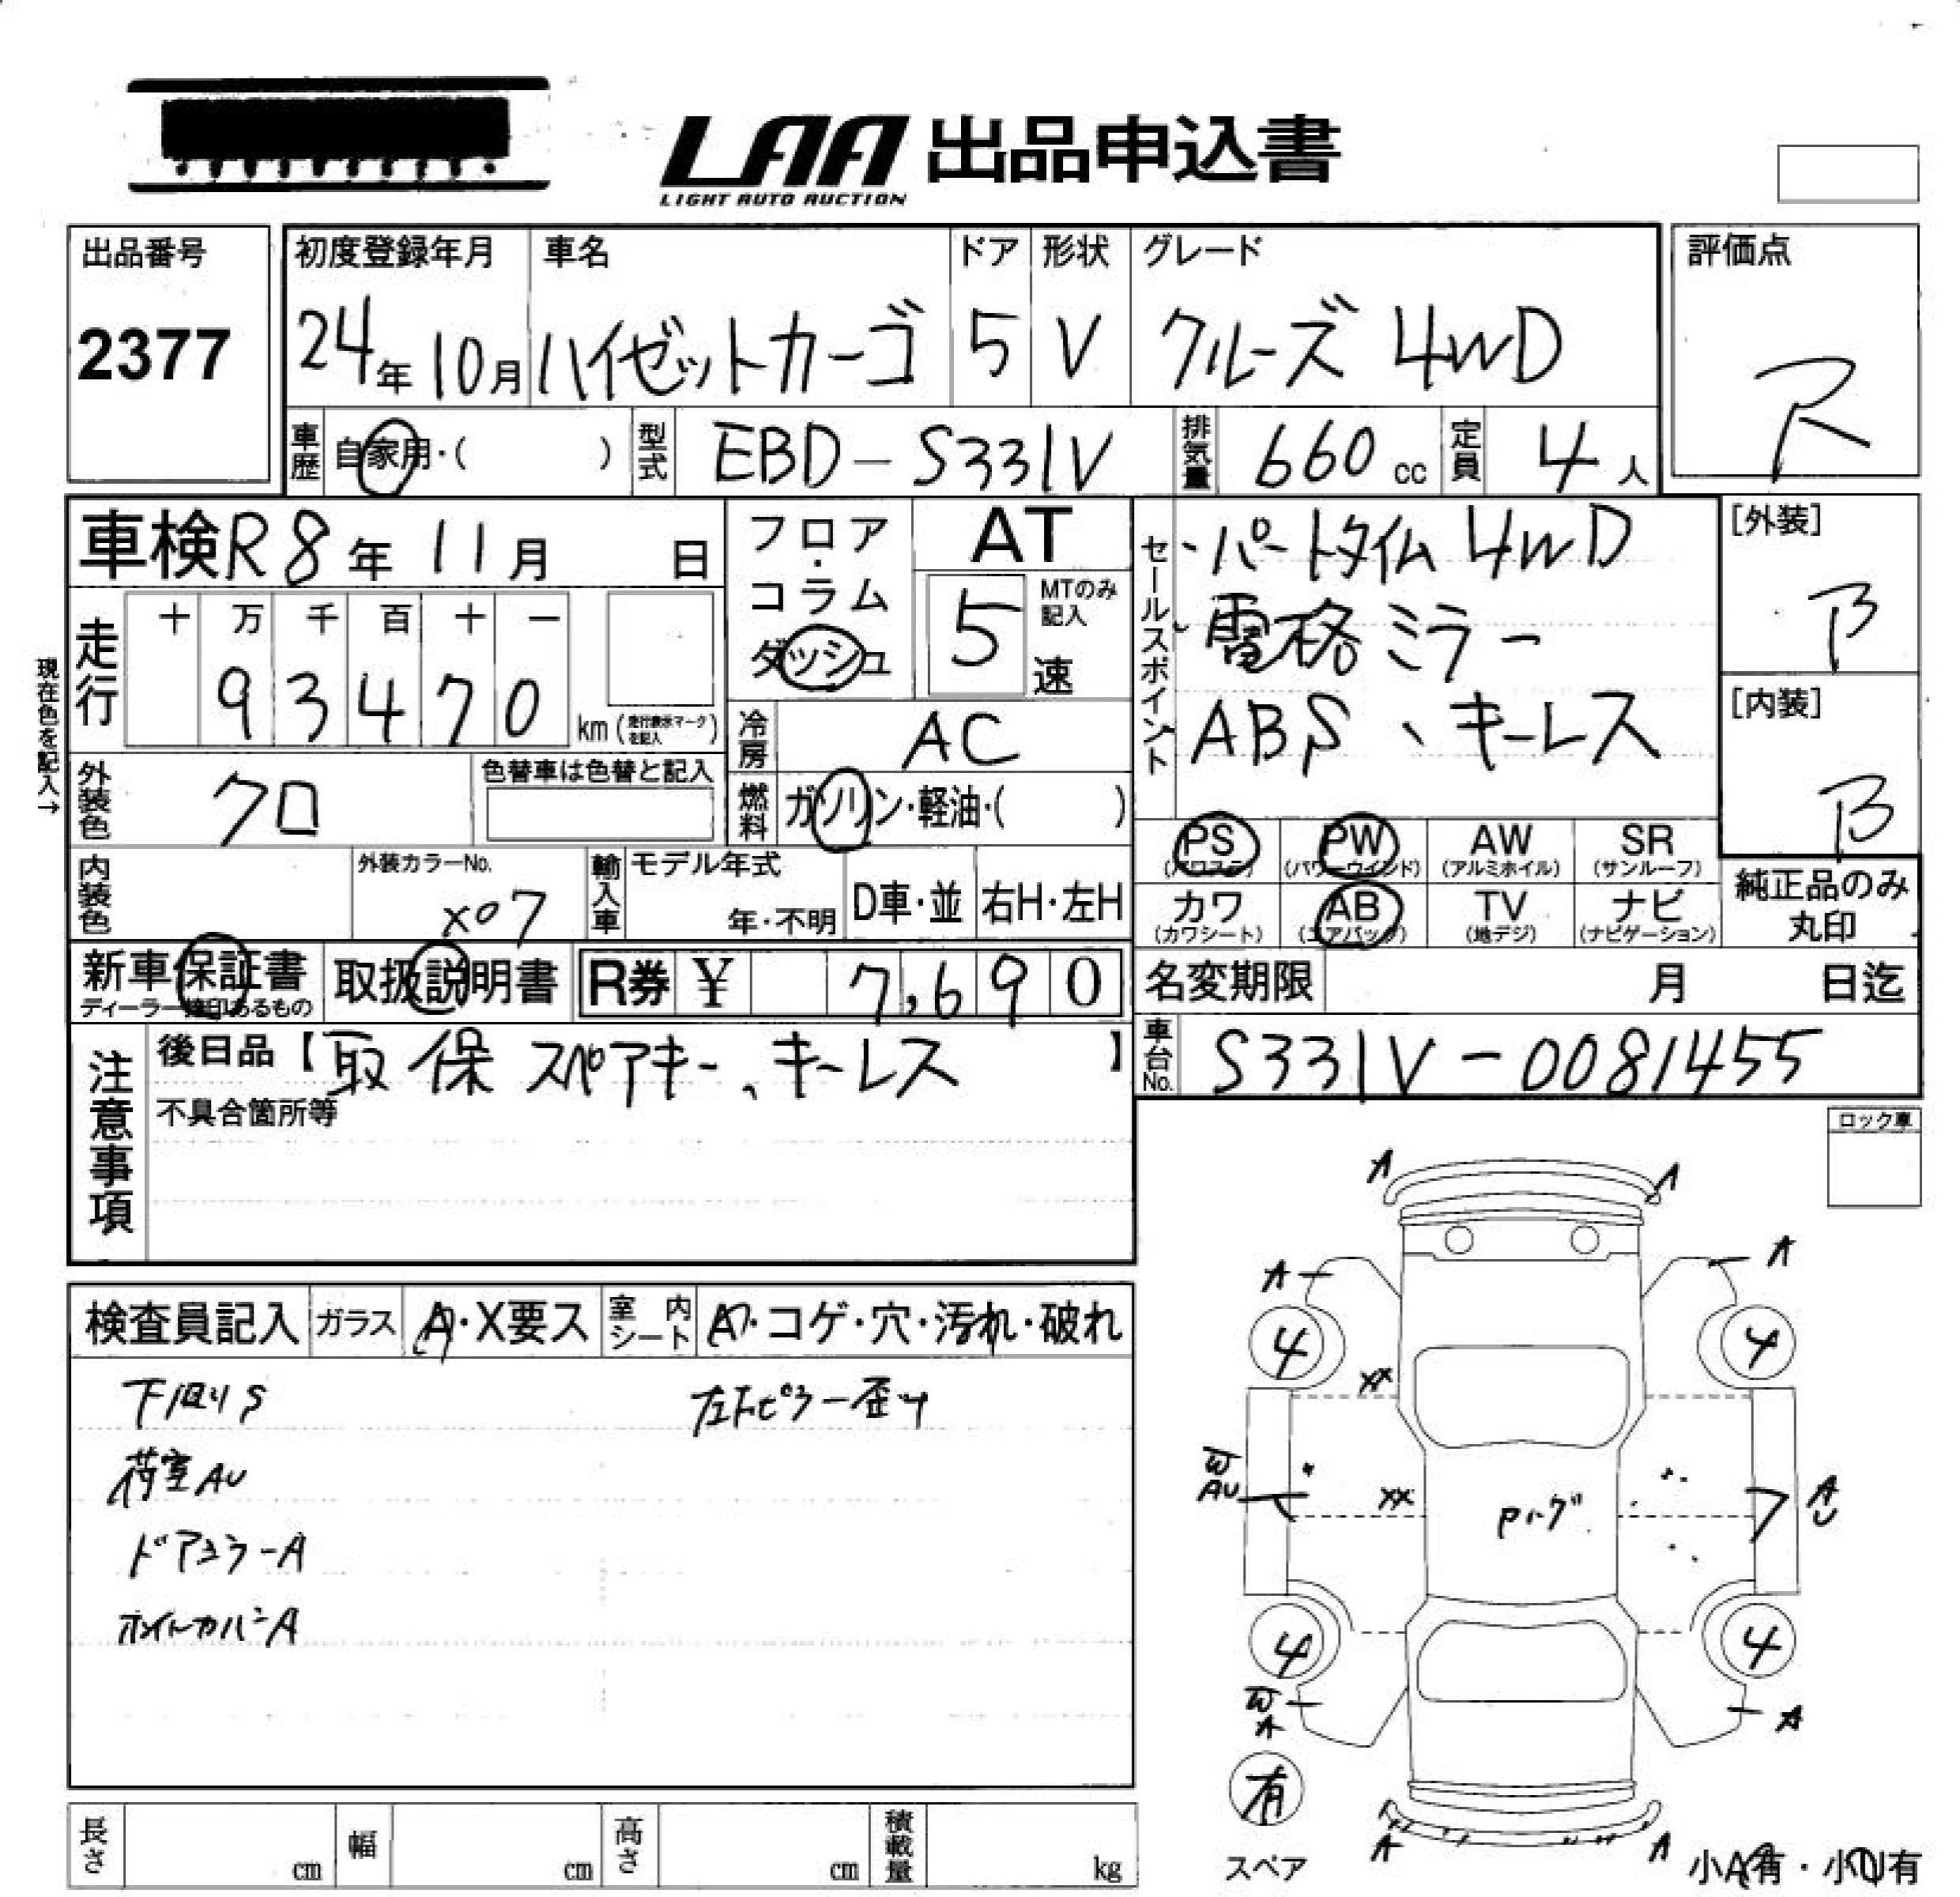 LAA 出品申込書
LIGHT AUTO AUCTION
出品番号
2377
初度登録年月
24年10月
車名
ハイゼットカーゴ
ドア
5
形状
V
グレード
クルーズ 4WD
評価点
R
車歴 自家用・( )
型式 EBD-S331V
排気量 660 cc
定員 4人
車検 R8年11月 日
フロア・コラム
ダッシュ
AT
5速
MTのみ記入
セールスポイント
・パートタイム 4WD
電格ミラー
ABS、キーレス
[外装]
B
[内装]
B
現在色を記入→
走行
十 万 千 百 十 一
93470 km (走行表示マークを記入)
冷房 AC
燃料 ガソリン・軽油・( )
外装色 クロ
色替車は色替と記入
PS (パワステ)
PW (パワーウインド)
AW (アルミホイル)
SR (サンルーフ)
カワ (カワシート)
AB (エアバッグ)
TV (地デジ)
ナビ (ナビゲーション)
純正品のみ丸印
内装色
外装カラーNo.
X07
輸入車
モデル年式
年・不明
D車・並
右H・左H
新車保証書
ディーラー捺印あるもの
取扱説明書
R券 ¥ 7,690
名変期限 月 日迄
車台No. S331V-0081455
注意事項
後日品【取 保 スペアキー、キーレス】
不具合箇所等
ロック車
検査員記入
ガラス A・X要ス
室内シート A・コゲ・穴・汚れ・破れ
下廻りS
左Fピラー歪み
荷室AU
ドアミラーA
ホイルカバーA
A A
A A
4 4
XX
W
AU
XX
Pトグ
A
U
4 4
W
A
A
有
スペア
A A
小A有・小U有
長さ cm
幅 cm
高さ cm
積載量 kg